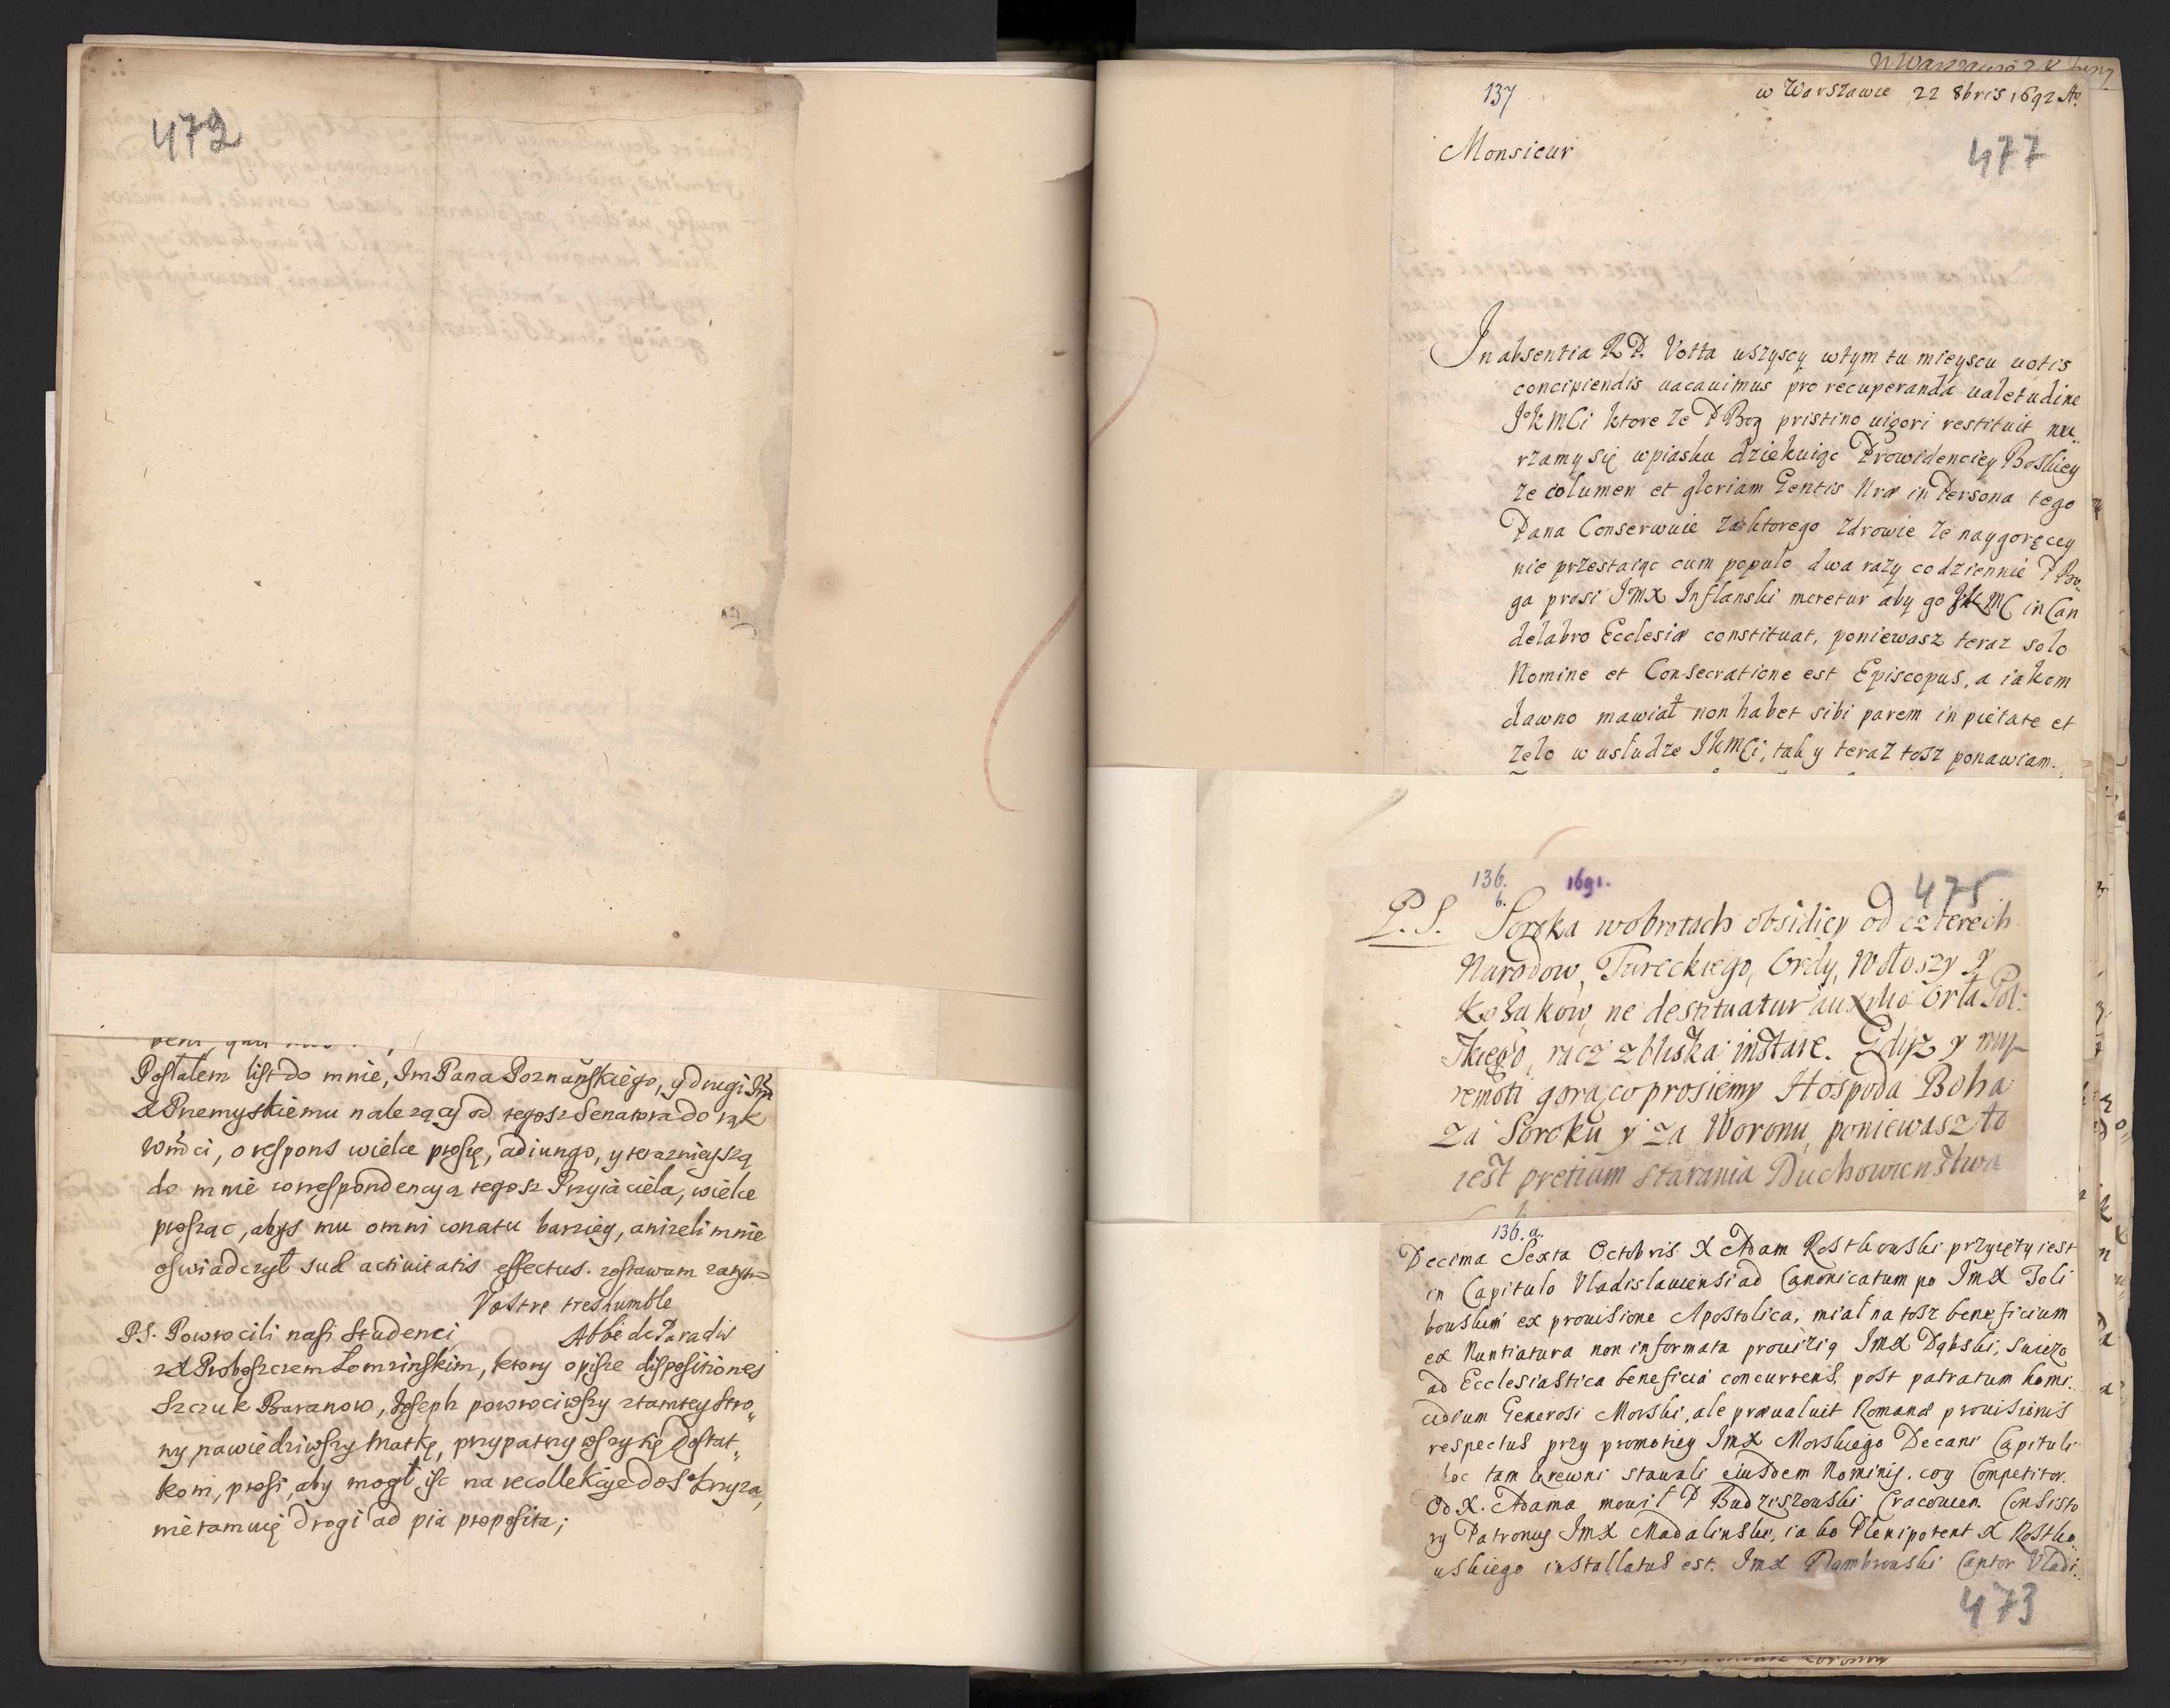 472
Posłałem list do mnie, Im Pana Poznańskiego, y drugi Im
X Przemyskiemu nalezący od tegosz Senatora do rąk
Wmći, o respons wielce proszę, adiungo, y teraznieyszą
do mnie correspondencyą tegosz Przyiaciela, wielce
prosząc, abys mu omni conatu barziey, anizeli mnie
oswiadczył suæ actiuitatis effectus. zostawam zatym
Vostre treshumble
Abbé de Paradis
P.S. Powrocili nasi studenci
z X Proboszczem Łomzinskim, ktory opisze dispositiones
Szczuk Baranow, Joseph powrociwszy z tamtey stro„
ny nawiedziwszy Matkę, przypatrzywszy się dostat„
kom, prosi, aby mogł isc na recollekcye do S Krzyza,
nie tamuię drogi ad pia proposita;
137
w Warszawie 22 8bris 1692 Ao
Monsieur
477
In absentia R P. Votta wszyscy w tym tu mieyscu votis
concipiendis vacauimus pro recuperanda valetudine
JKMCi ktore ze P Bog pristino vigori restituit nu„
rzamy się w piasku dziekuiąc Prowidenciey Boskiey
ze columen et gloriam Gentis Nræ in Persona tego
Pana Conserwuie za ktorego zdrowie ze naygoręcey
nie przestaiąc cum populo dwa razy codziennie P Bo„
ga prosi JMX Inflanski meretur aby go JKMC in Can
delabro Ecclesiæ constituat, poniewasz teraz solo
Nomine et Consecratione est Episcopus, a iakom
dawno mawiał non habet sibi parem in pietate et
zelo w usłudze JKMCi, tak y teraz tosz ponawiam.
136.
b.
1691.
475
P.S. Soroka w obrotach obsidiey od czterech
Narodow, Tureckiego, Ordy, Wołoszy y
Kozakow, ne destituatur auxilio Orła Pol:
skiego, racz z bliska instare. Gdysz y my
remoti gorąco prosiemy Hospoda Boha
za Soroku y za Woronu, poniewasz to
iest pretium starania Duchowienstwa
136.a.
Decima Sexta Octobris X Adam Rostkowski przyięty iest
in Capitulo Vladislauiensi ad Canonicatum po JmX Joli
bouskim ex prouisione Apostolica, miał na tosz beneficium
ex Nuntiatura non informata prouizią JmX Dąbski, swiezo
ad Ecclesiastica beneficia concurrens, post patratum homi„
cidium Generosi Morski, ale præualuit Romanæ prouisionis
respectus przy promotiey JmX Morskiego Decani Capituli
bo tam krewni stawali eiusdem Nominis. coy Competitor.
Od X. Adama mowił P Budziszouski Cracouien. Consisto
ry Patronus JmX Madalinski, iako Plenipotent X Rostko„
uskiego installatus est. JmX Dambrouski Cantor Vladi„
473